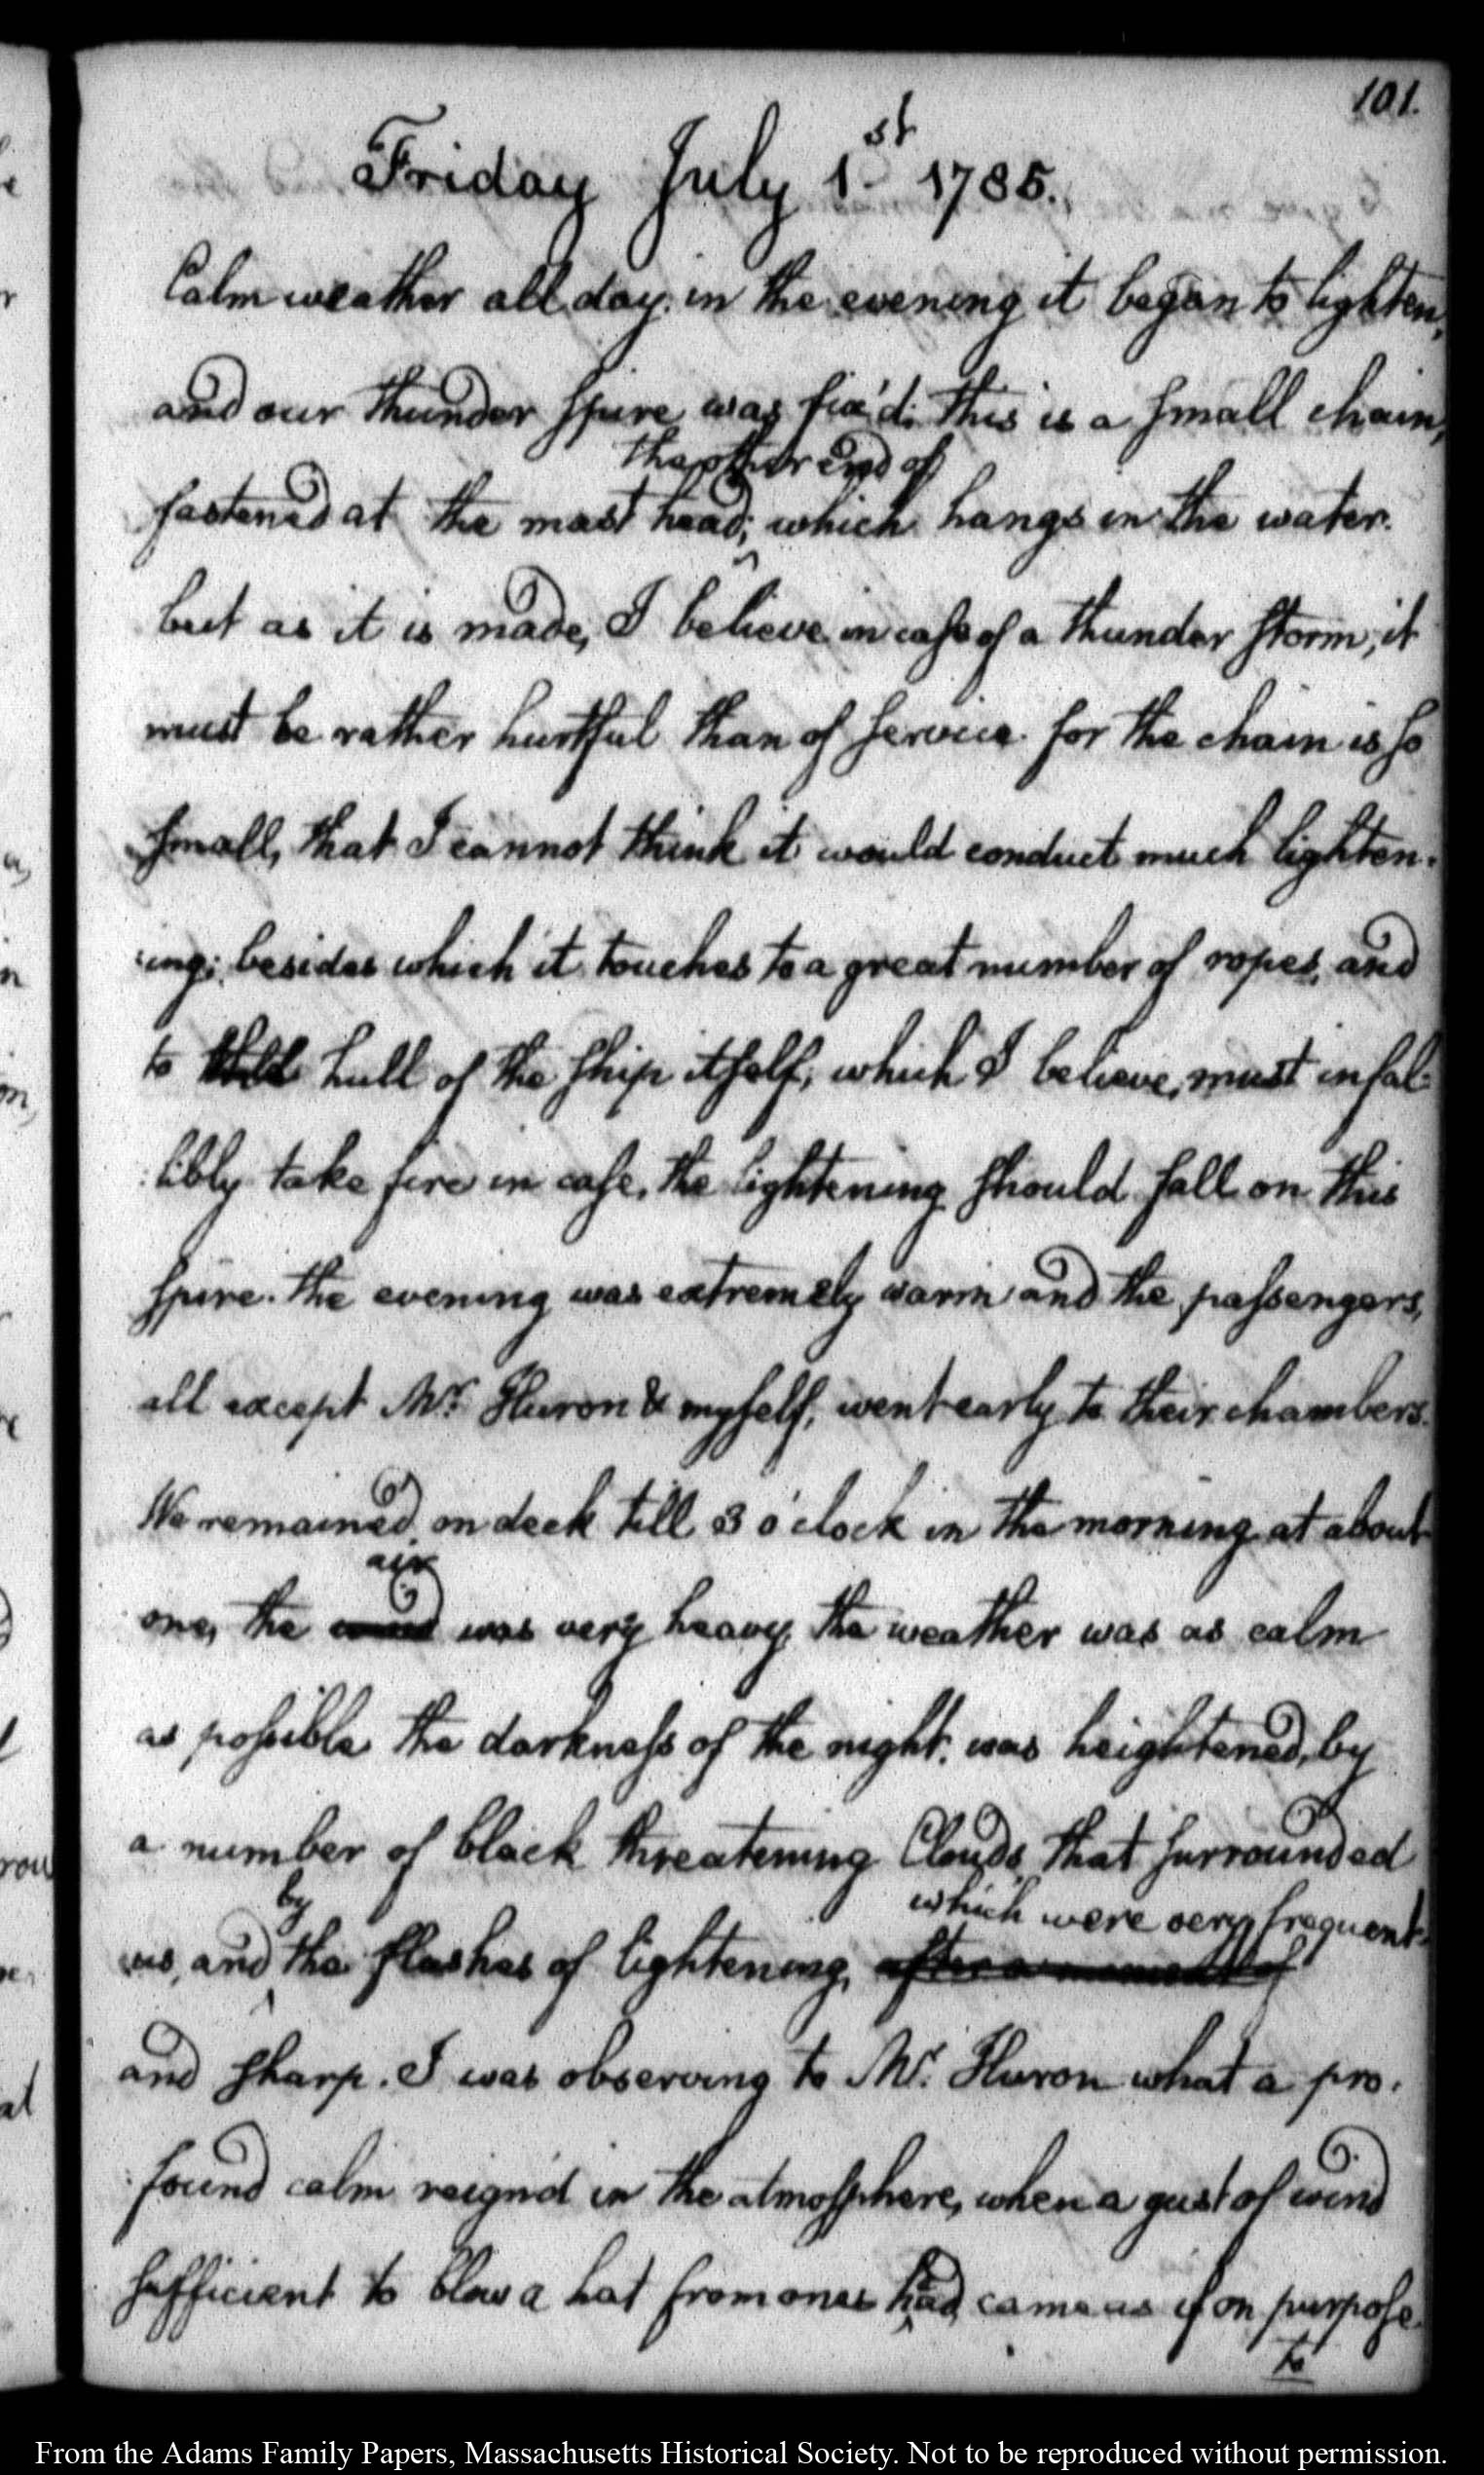 101.
Friday July 1st 1785.
Calm weather all day. in the evening it began to lighten,
and our thunder spire was fix'd. this is a small chain,
the other end of
fastened at the mast head; which hangs in the water.
but as it is made, I believe in case of a thunder storm, it
must be rather hurtful than of service. for the chain is so
small, that I cannot think it would conduct much lighten-
ing; besides which it touches to a great number of ropes, and
to hull of the ship itself, which I believe, must infal-
libly take fire in case, the lightening should fall on this
spire. the evening was extremely warm and the passengers,
all except Mr. Huron & myself, went early to their chambers.
We remained on deck till 3 o'clock in the morning. at about
air
one, the was very heavy, the weather was as calm
as possible the darkness of the night. was heightened, by
a number of black threatening Clouds, that surrounded
by which were very frequent.
us, and the flashes of lightening, after a moment of
and sharp. I was observing to Mr. Huron what a pro-
found calm reign'd in the atmosphere, when a gust of wind
sufficient to blow a hat from ones head, came as if on purpose
to
From the Adams Family Papers, Massachusetts Historical Society. Not to be reproduced without permission.